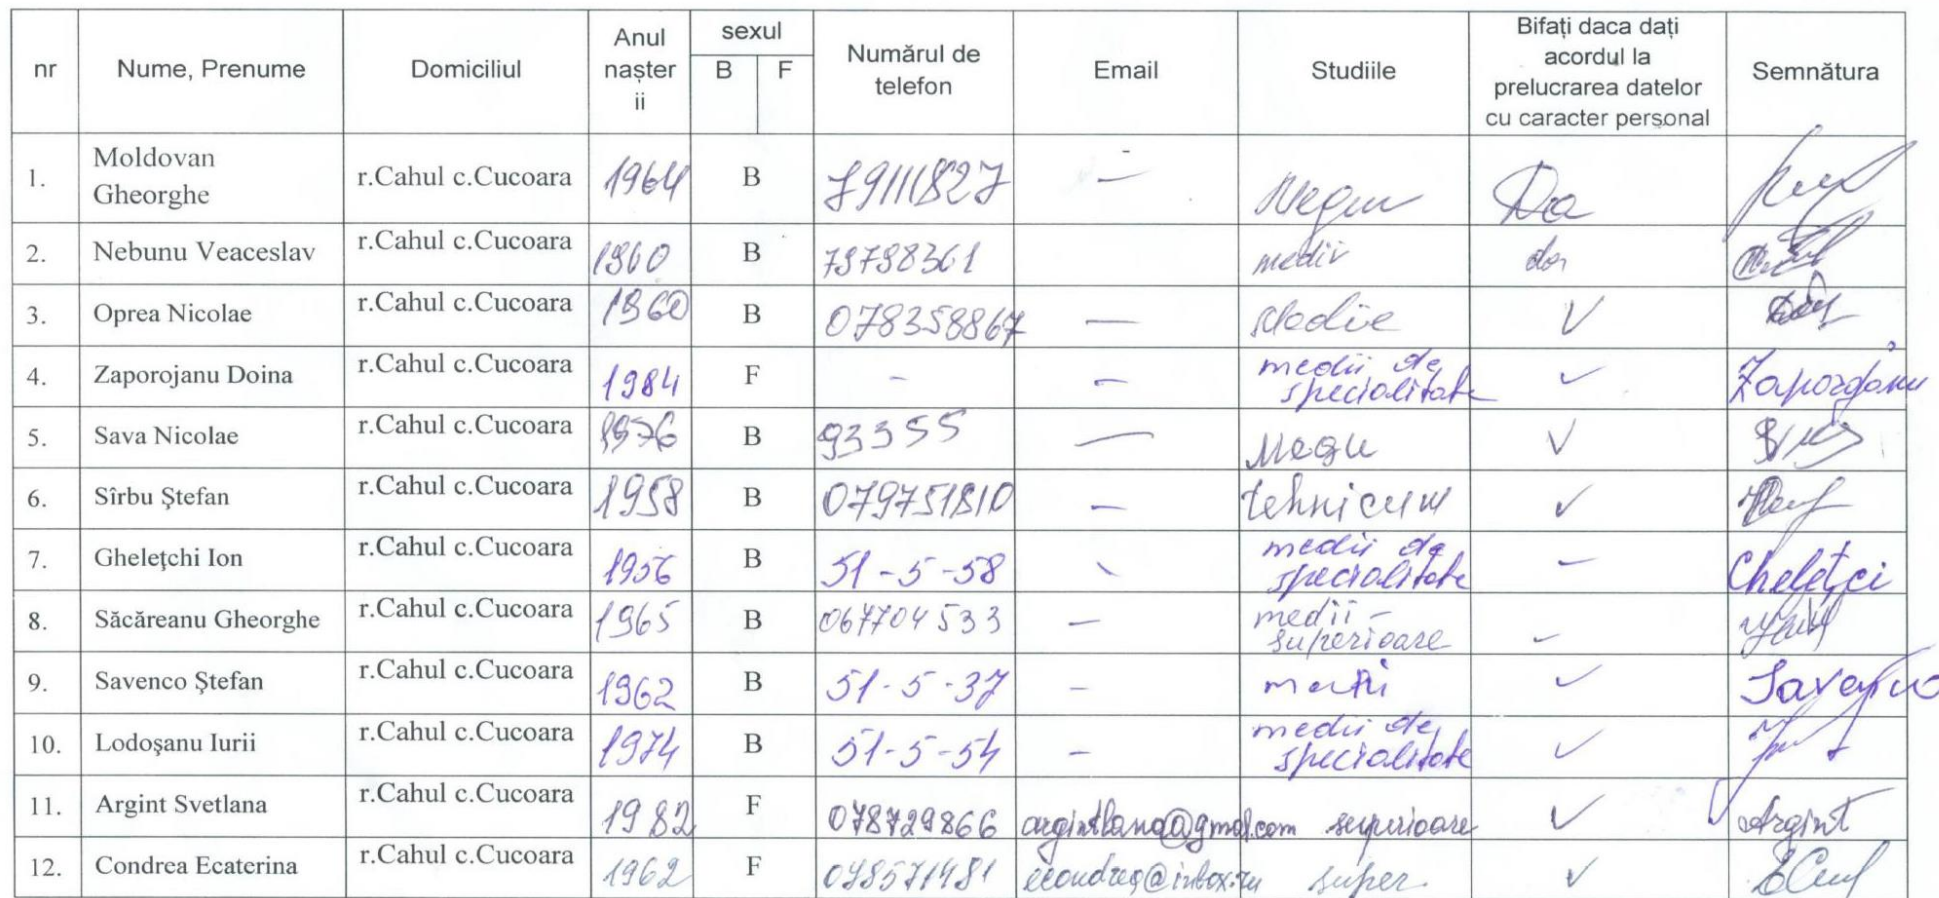 nr Nume, Prenume Domiciliul Anul nașter ii sexul B F Numărul de telefon Email Studiile Bifați daca dați acordul la prelucrarea datelor cu caracter personal Semnătura
1. Moldovan Gheorghe r.Cahul c.Cucoara 1964 B 79111827 — Da
2. Nebunu Veaceslav r.Cahul c.Cucoara 1960 B 79798361 medii da
3. Oprea Nicolae r.Cahul c.Cucoara 1960 B 078358867 — Medie V
4. Zaporojanu Doina r.Cahul c.Cucoara 1984 F - — medii de specialitate ✓
5. Sava Nicolae r.Cahul c.Cucoara 1976 B 93355 — V
6. Sîrbu Ştefan r.Cahul c.Cucoara 1958 B 079751810 — tehnicum ✓
7. Gheleţchi Ion r.Cahul c.Cucoara 1956 B 51-5-58 medii de specialitate — Cheleţci
8. Săcăreanu Gheorghe r.Cahul c.Cucoara 1965 B 067704533 — medii - superioare
9. Savenco Ştefan r.Cahul c.Cucoara 1962 B 51-5-37 — ✓
10. Lodoşanu Iurii r.Cahul c.Cucoara 1974 B 51-5-54 — medii de specialitate ✓
11. Argint Svetlana r.Cahul c.Cucoara 1982 F 078729866 superioare V Argint
12. Condrea Ecaterina r.Cahul c.Cucoara 1962 F 078571481 super. V